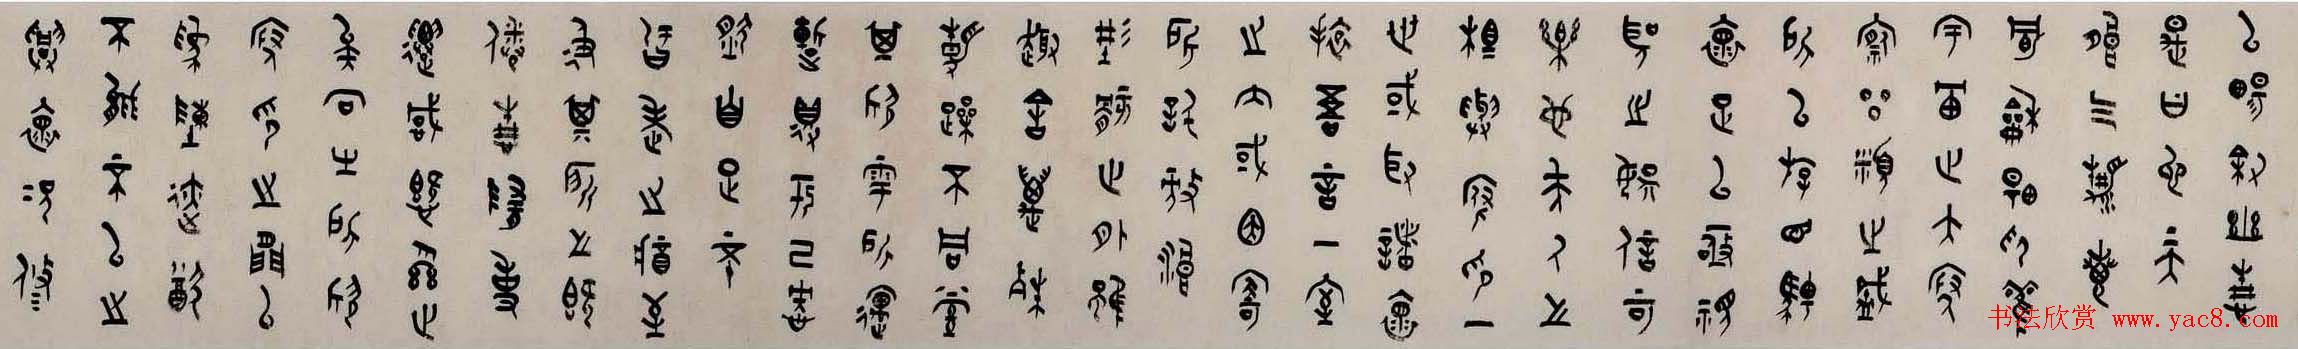 以暢敘幽情
是日也天
朗气清惠
風和暢仰觀
宇宙之大俯
察品類之盛
所以遊目騁
懷足以極視
聽之娛信可
樂也夫人之
相與俯仰一
世或取諸懷
抱悟言一室
之內或因寄
所託放浪
形骸之外雖
趣舍萬殊
靜躁不同當
其欣於所遇
暫得於己快
然自足不
知老之將至
及其所之既
倦情隨事
遷感慨係之
矣向之所欣
俛仰之間以
為陳跡猶
不能不以之
興懷況修
书法欣赏 www.yac8.com